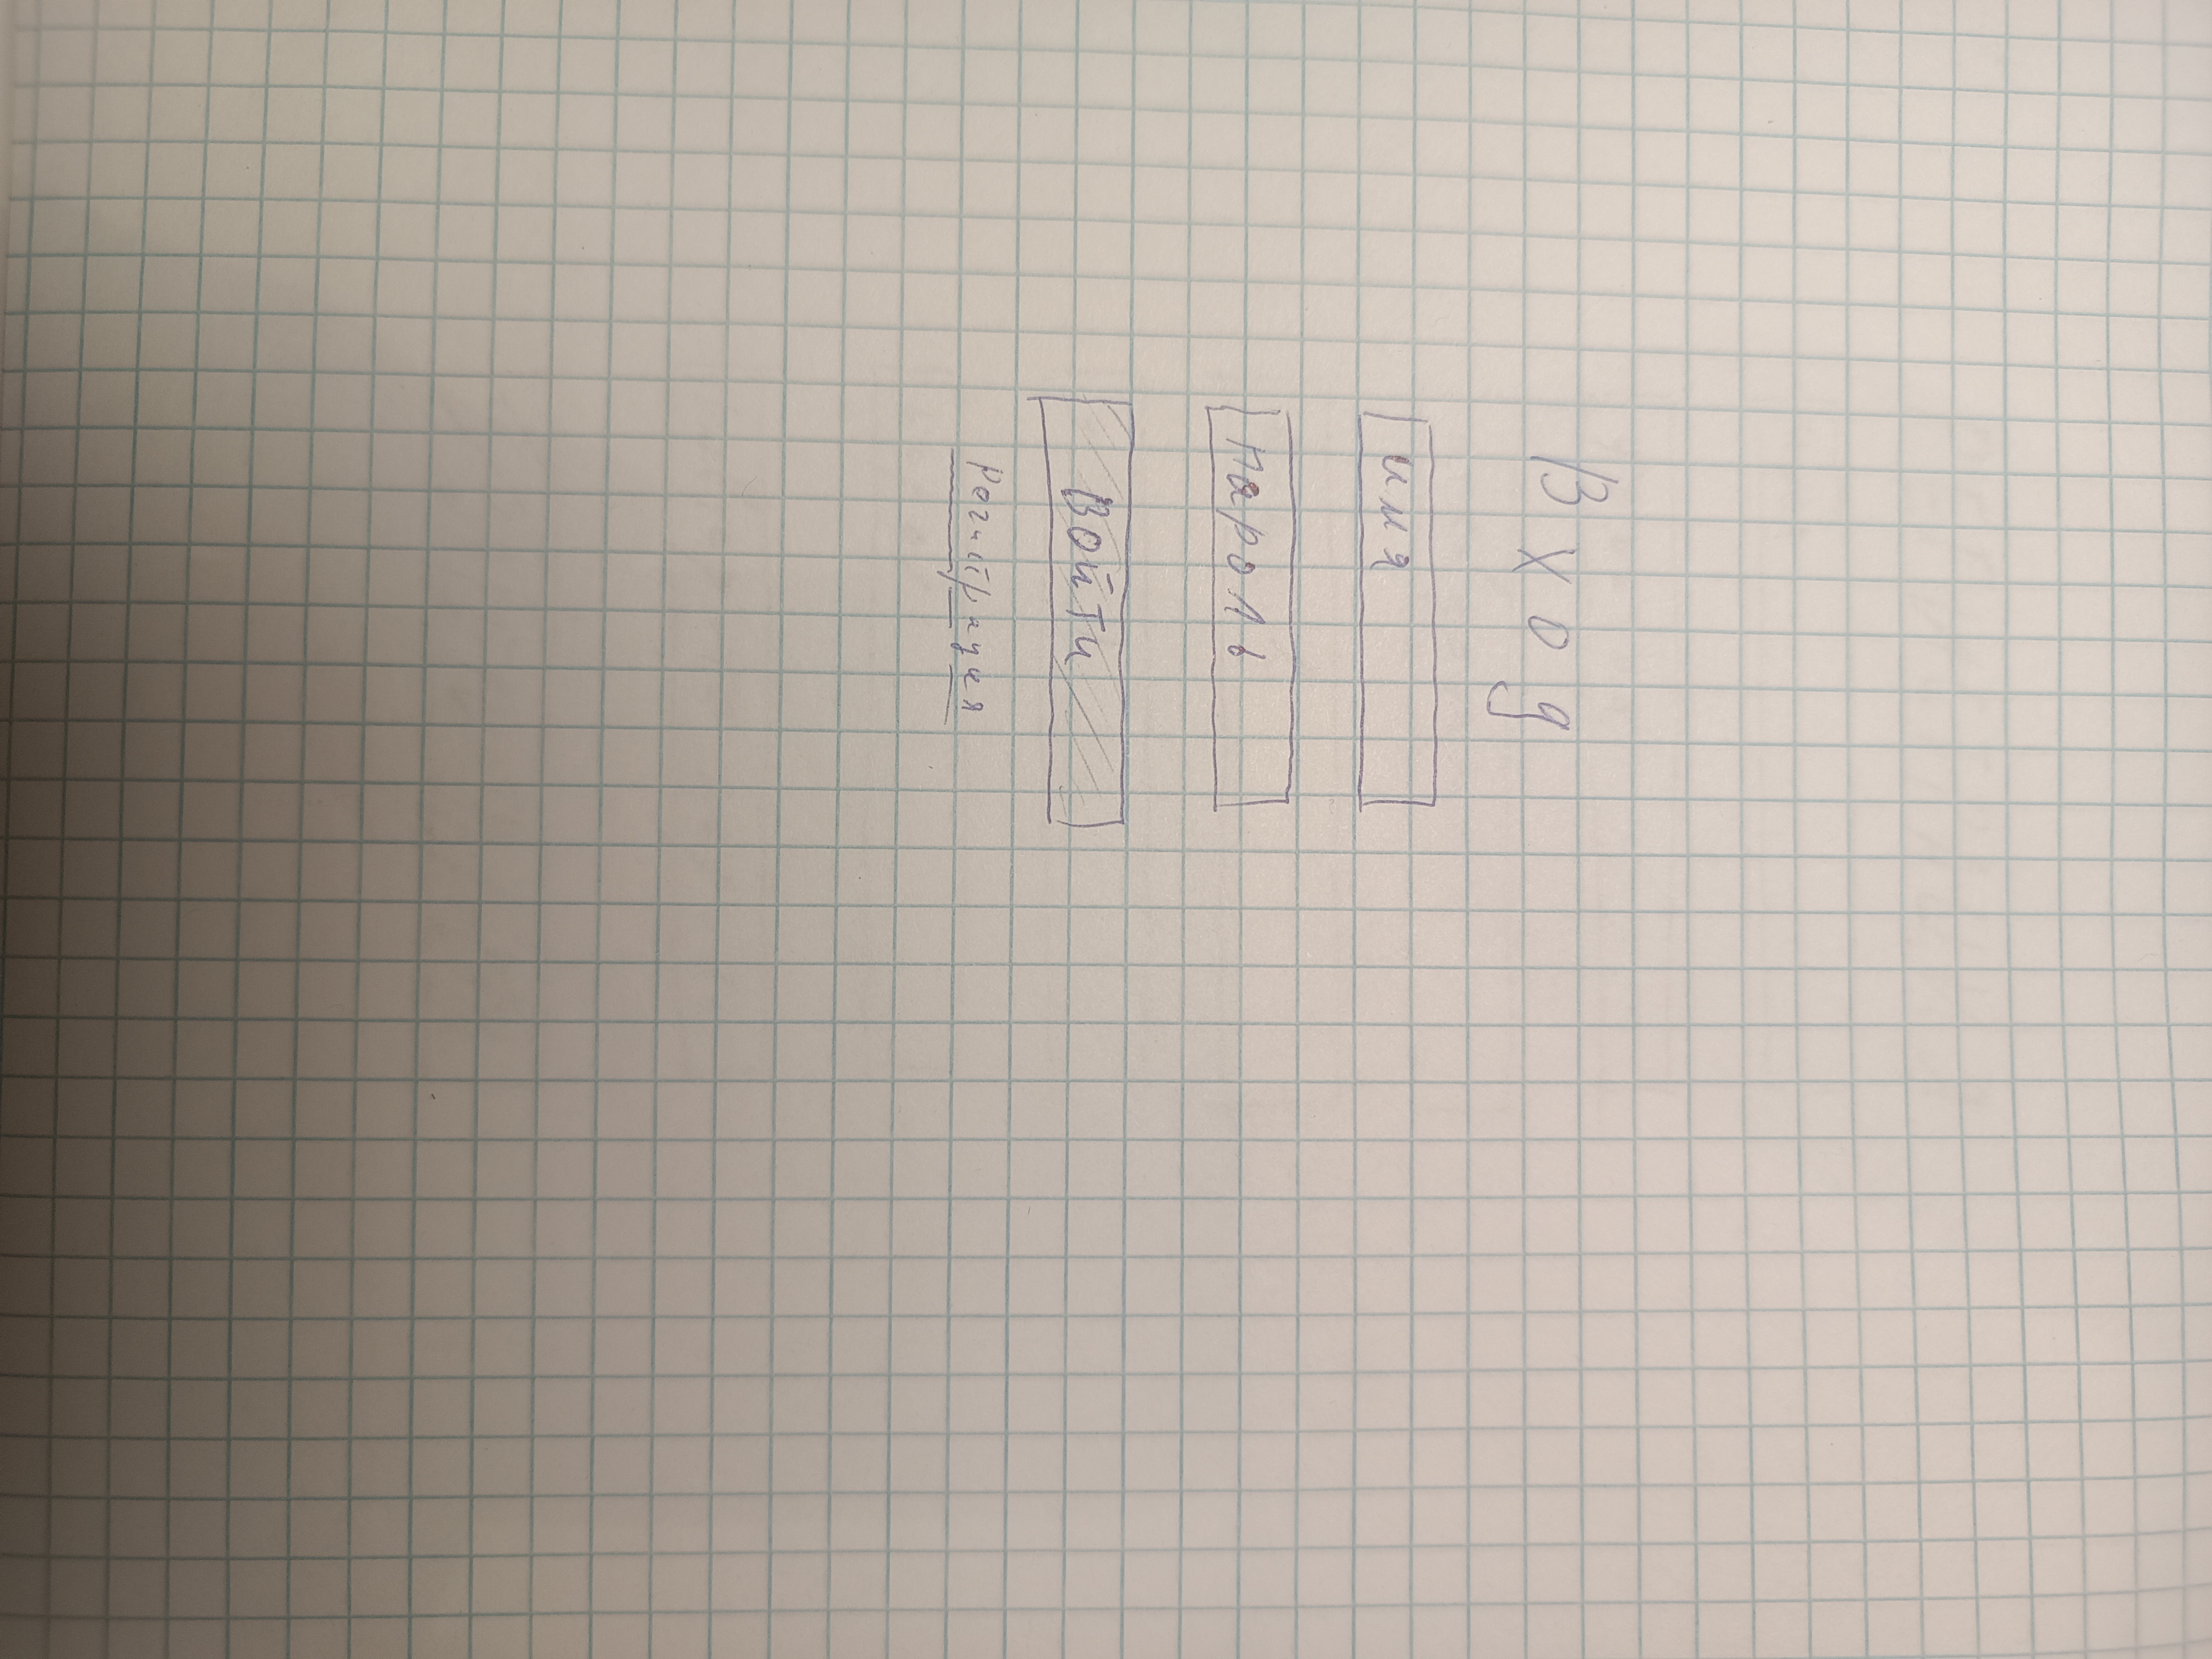 Вход
имя
пароль
Войти
Регистрация